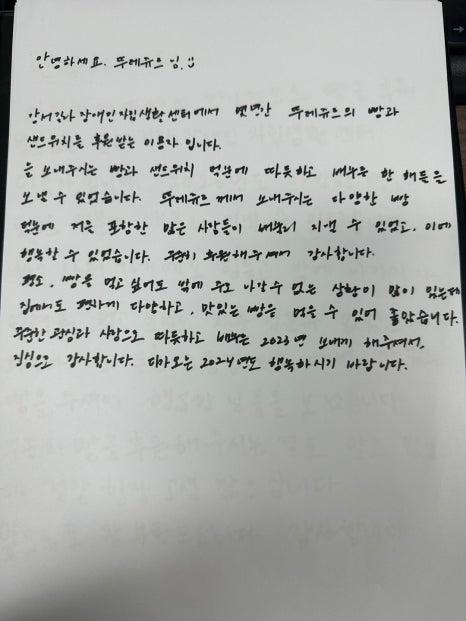 안녕하세요. 뚜레쥬르 님. :)
강서길라 장애인자립생활센터에서 몇년간 뚜레쥬르의 빵과
샌드위치를 후원받는 이용자 입니다.
늘 보내주시는 빵과 샌드위치 덕분에 따듯하고 배부른 한 해들을
보낼 수 있었습니다. 뚜레쥬르 께서 보내주시는 다양한 빵
덕분에 저를 포함한 많은 사람들이 배불리 지낼 수 있었고, 이에
행복할 수 있었습니다. 후원해주셔서 감사합니다.
평소, 빵을 먹고 싶어도 밖에 주로 나갈 수 없는 상황이 많이 있는데
집에서도 편하게 다양하고, 맛있는 빵을 먹을 수 있어 좋았습니다.
꾸준한 관심과 사랑으로 따듯하고 배부른 2023년 보내게 해주셔서,
진심으로 감사합니다. 다가오는 2024년도 행복하시기 바랍니다.